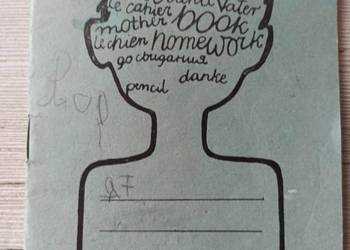 le cahier Vater
mother book
le chien homework
до свидания
pencil danke